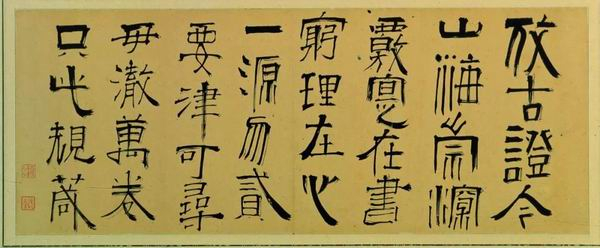 攷古證今
山海崇深
覈實在書
窮理在心
一源勿貳
要津可尋
毋澈萬卷
只此規箴